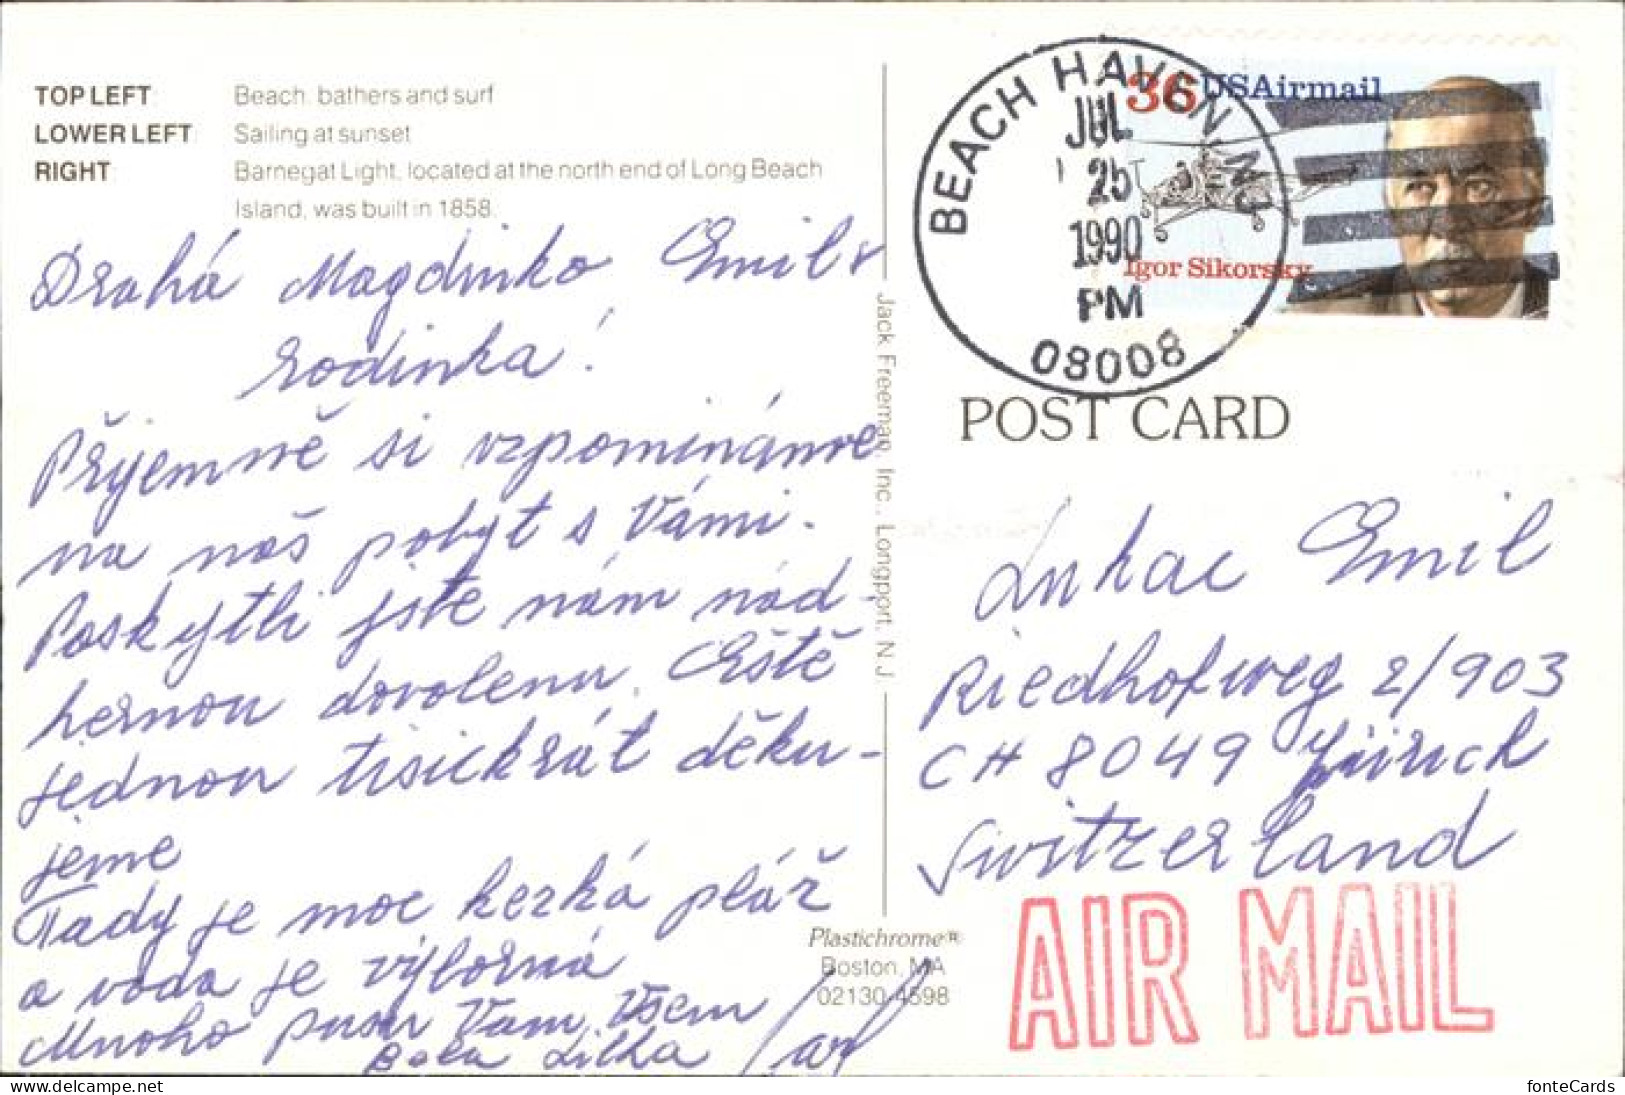 TOP LEFT: Beach, bathers and surf
LOWER LEFT: Sailing at sunset
RIGHT: Barnegat Light, located at the north end of Long Beach
Island, was built in 1858.
Drahá Magdinko Emil
rodinka!
Příjemně si vzpomínáme
na náš pobyt s Vámi.
Poskytli jste nám nád-
hernou dovolenu. Eště
jednou tisickrát děku-
jeme
Tady je moc hezká pláž
a voda je výborná
Mnoho pusu Vam Vsem
Lilka
Jack Freeman, Inc., Longport, N.J.
Plastichrome®
Boston, MA
02130-4598
BEACH HAVEN NJ
JUL
25
1990
PM
08008
36 USAirmail
Igor Sikorsky
POST CARD
Lukac Emil
Riedhofweg 2/903
CH 8049 Zürich
Switzerland
AIR MAIL
fonteCards